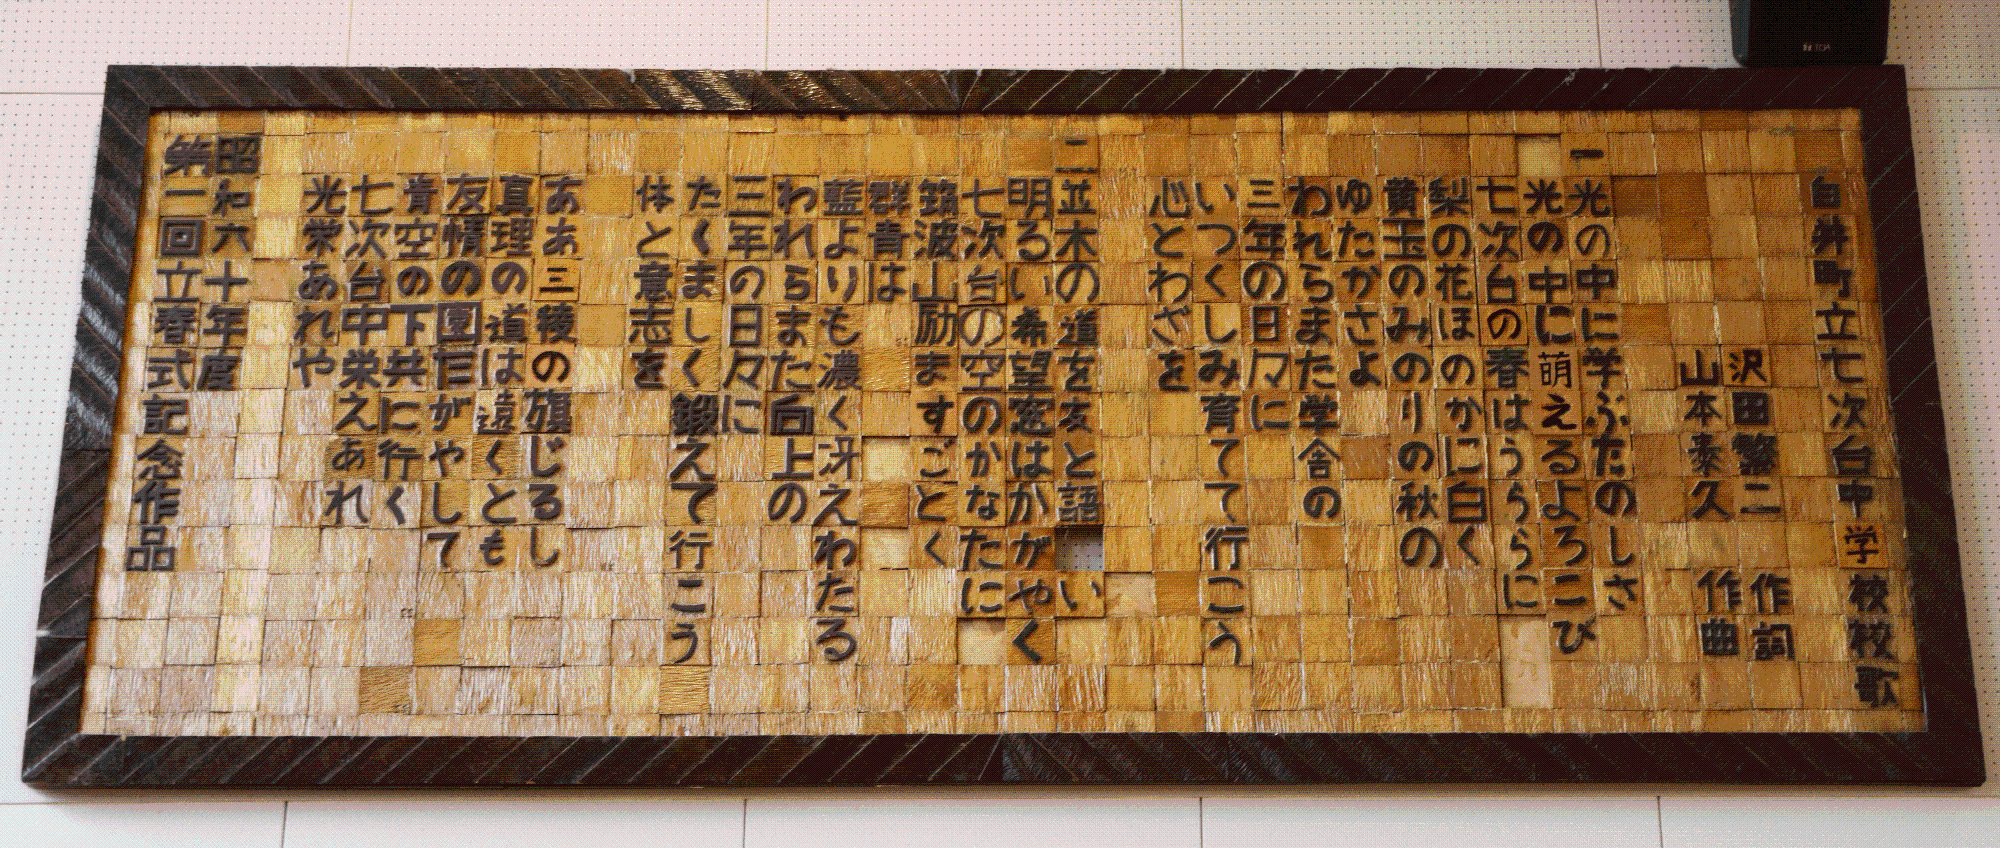 白井町立七次台中学校校歌
沢田繁二 作詞
山本泰久 作曲
一 光の中に学ぶたのしさ
光の中に萌えるよろこび
七次台の春はうららに
梨の花ほのかに白く
黄玉のみのりの秋の
ゆたかさよ
われらまた学舎の
三年の日々に
いつくしみ育てて行こう
心とわざを
二 並木の道を友と語い
明るい希望窓はかがやく
七次台の空のかなたに
筑波山励ますごとく
群青は
藍よりも濃く冴えわたる
われらまた向上の
三年の日々に
たくましく鍛えて行こう
体と意志を
ああ三稜の旗じるし
真理の道は遠くとも
友情の園だがやして
青空の下共に行く
七次台中栄えあれ
光栄あれや
昭和六十年度
第一回立春式記念作品
TOA